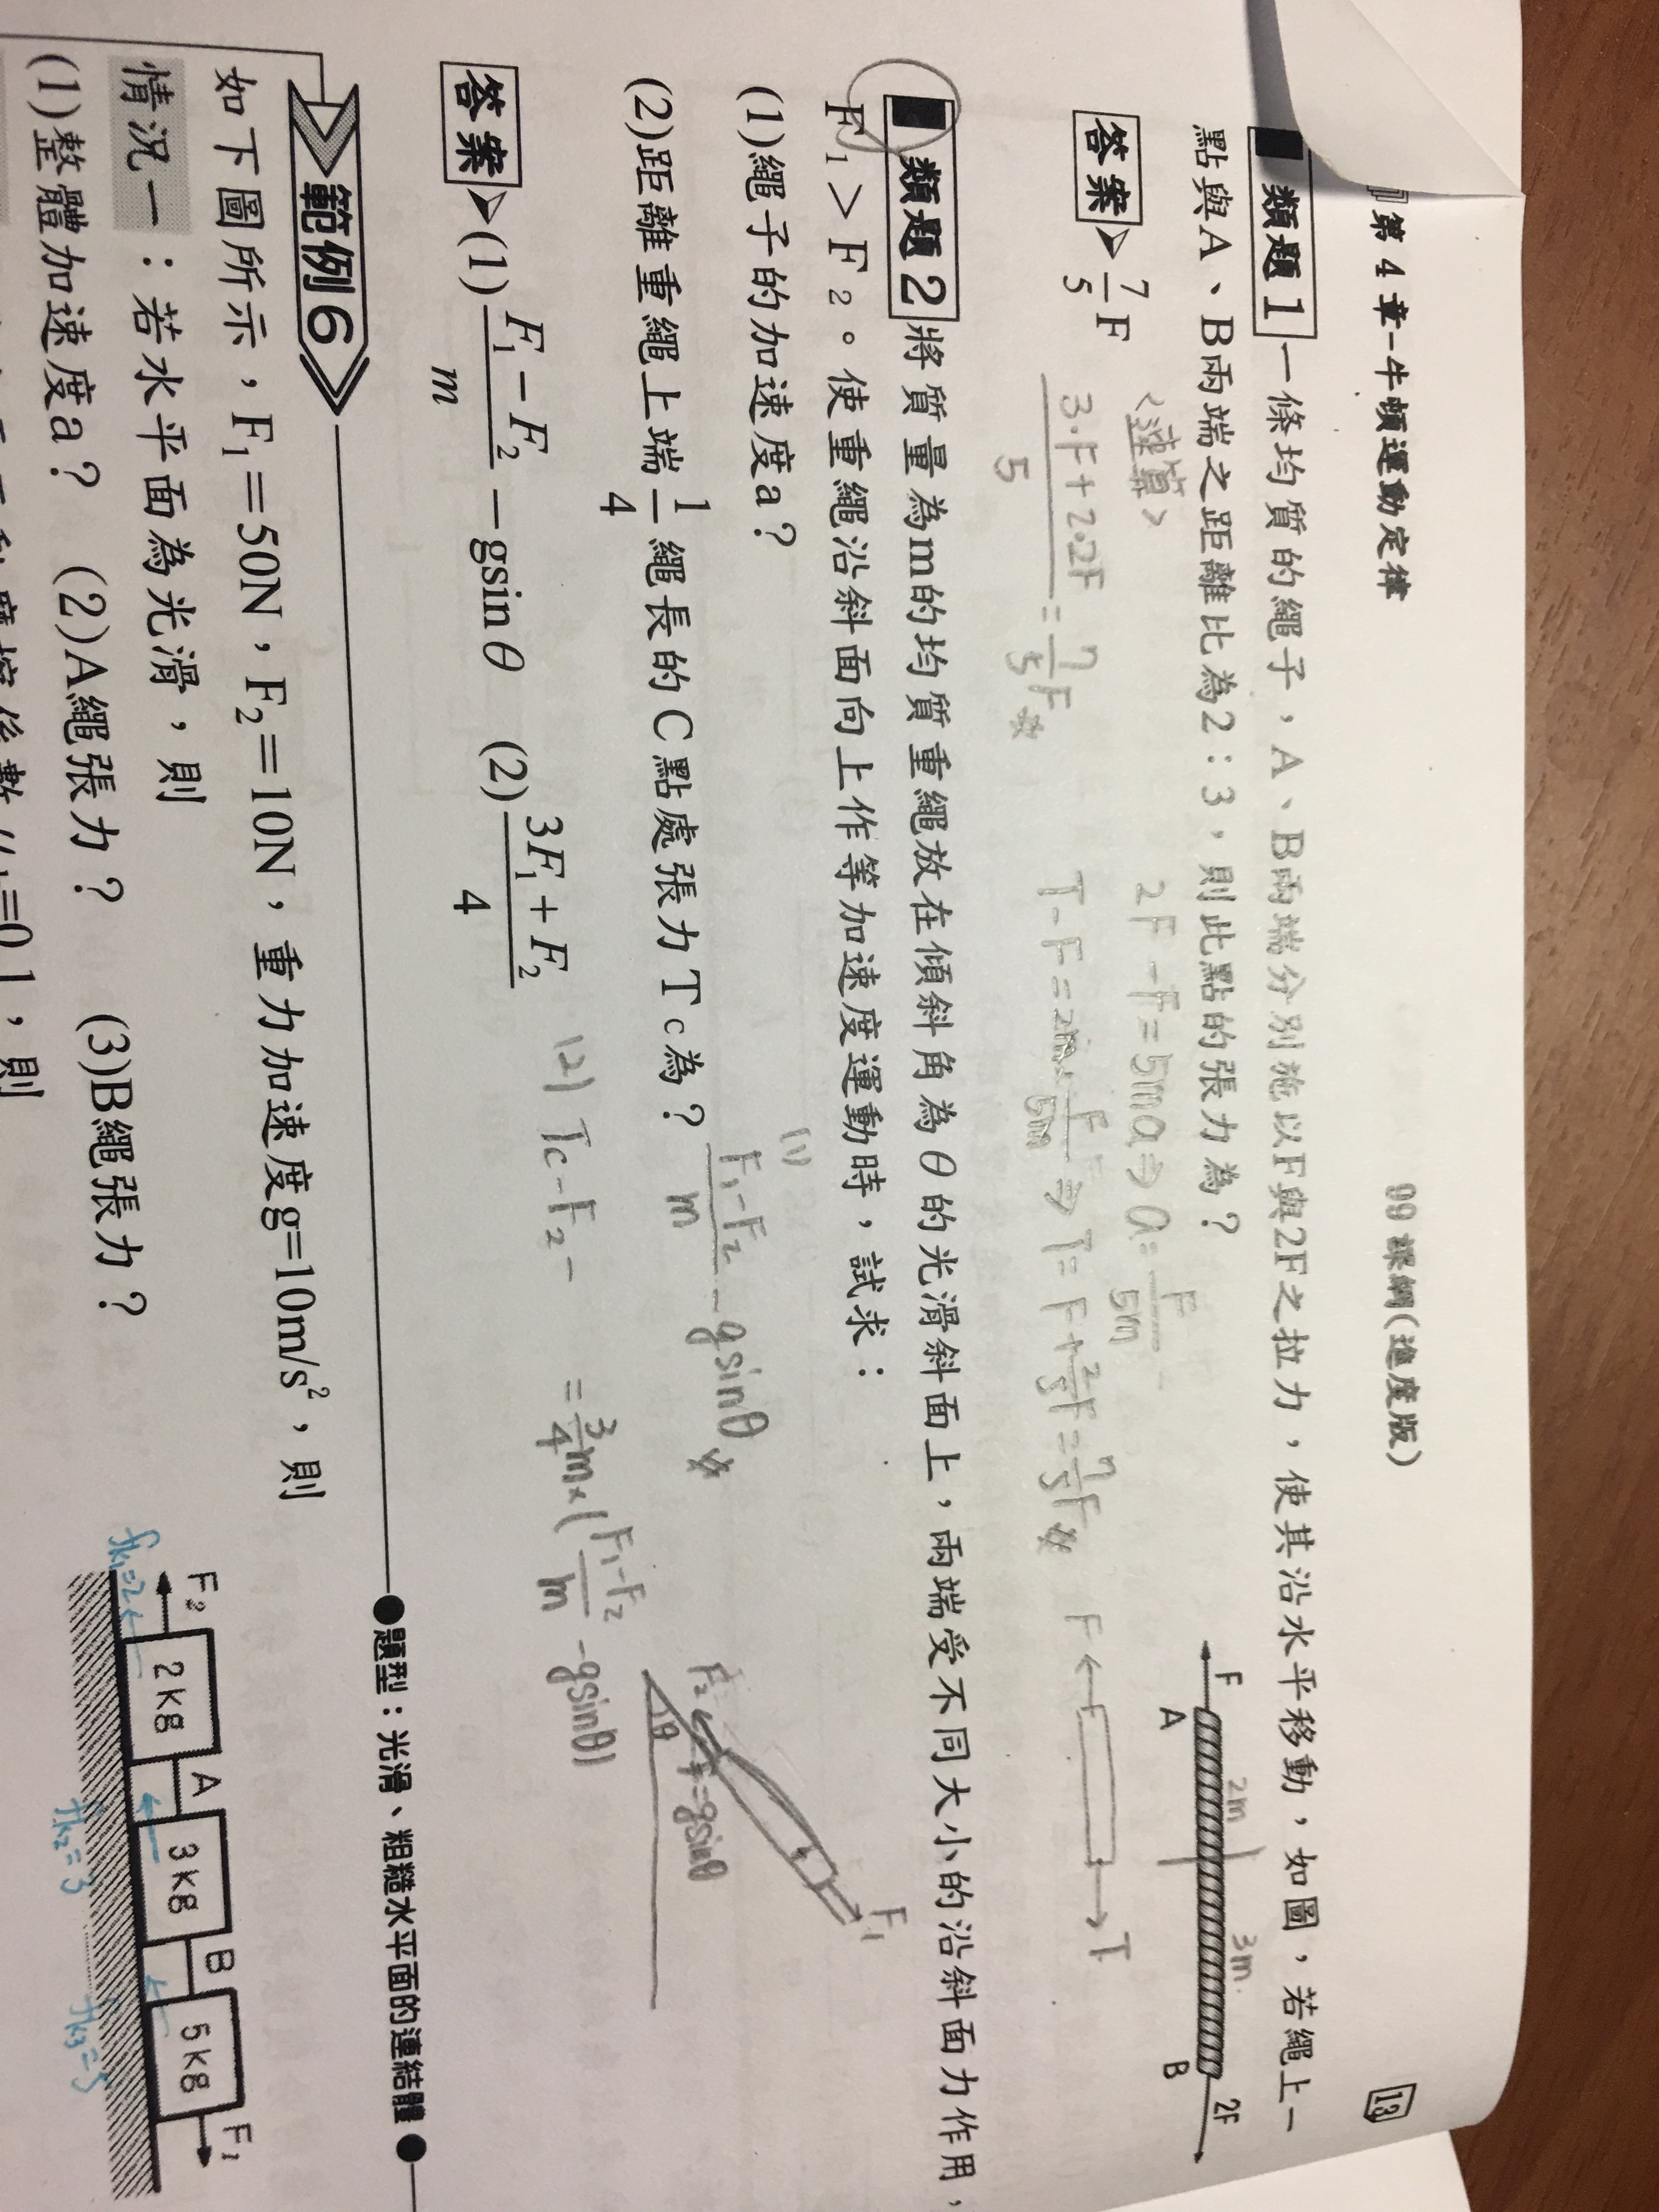 第4章-牛頓運動定律
99課綱(進度版)
13
類題1 一條均質的繩子,A、B兩端分別施以F與2F之拉力,使其沿水平移動,如圖,若繩上一
點與A、B兩端之距離比為2:3,則此點的張力為?
F A 2m 3m B 2F
答案 7/5 F
<速算>
3·F+2·2F/5 = 7/5 F
2F-F=5ma⇒a=F/5m
T-F=2m×F/5m⇒T=F+2/5F=7/5F
F T
類題2 將質量為m的均質重繩放在傾斜角為θ的光滑斜面上,兩端受不同大小的沿斜面力作用,
F₁>F₂。使重繩沿斜面向上作等加速度運動時,試求:
(1)繩子的加速度a?
(1) F₁-F₂/m -gsinθ
(2)距離重繩上端1/4繩長的C點處張力Tc為?
F₁
F₂
=gsinθ
θ
(2) Tc-F₂- =3/4m×(F₁-F₂/m -gsinθ)
答案 (1) F₁-F₂/m -gsinθ (2) 3F₁+F₂/4
範例6
●題型:光滑、粗糙水平面的連結體●
如下圖所示,F₁=50N,F₂=10N,重力加速度g=10m/s²,則
情況一:若水平面為光滑,則
(1)整體加速度a? (2)A繩張力? (3)B繩張力?
F₂ 2kg A 3kg B 5kg F₁
fk₁=2 fk₂=3 fk₃=5
=0.1,則